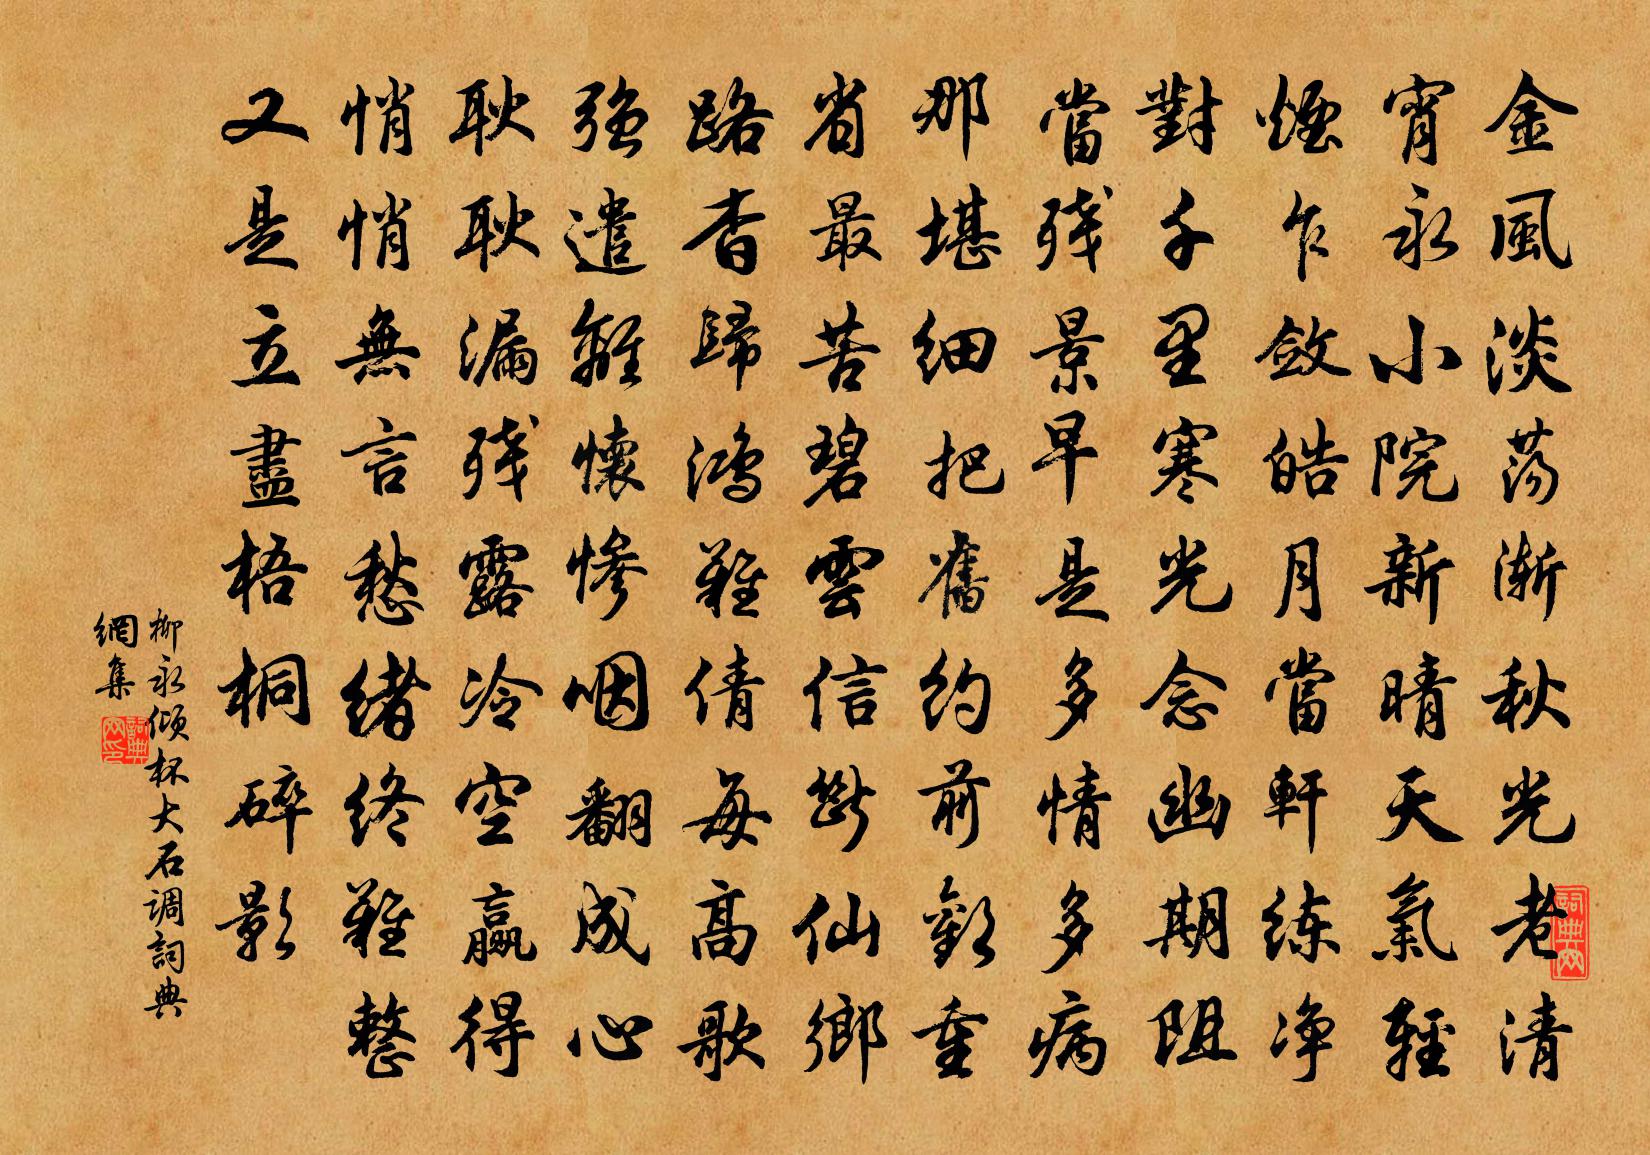 金風淡荡渐秋光老清
宵永小院新晴天氣輕
煙乍斂皓月當軒练净
對千里寒光念幽期阻
當残景早是多情多病
那堪细把舊约前歡重
省最苦碧雲信断仙鄉
路杳歸鸿難倩每高歌
强遣離懷惨咽翻成心
耿耿漏残露冷空赢得
悄悄無言愁绪终難整
又是立盡梧桐碎影
柳永倾杯大石调詞典
網集
詞典网
詞典网印